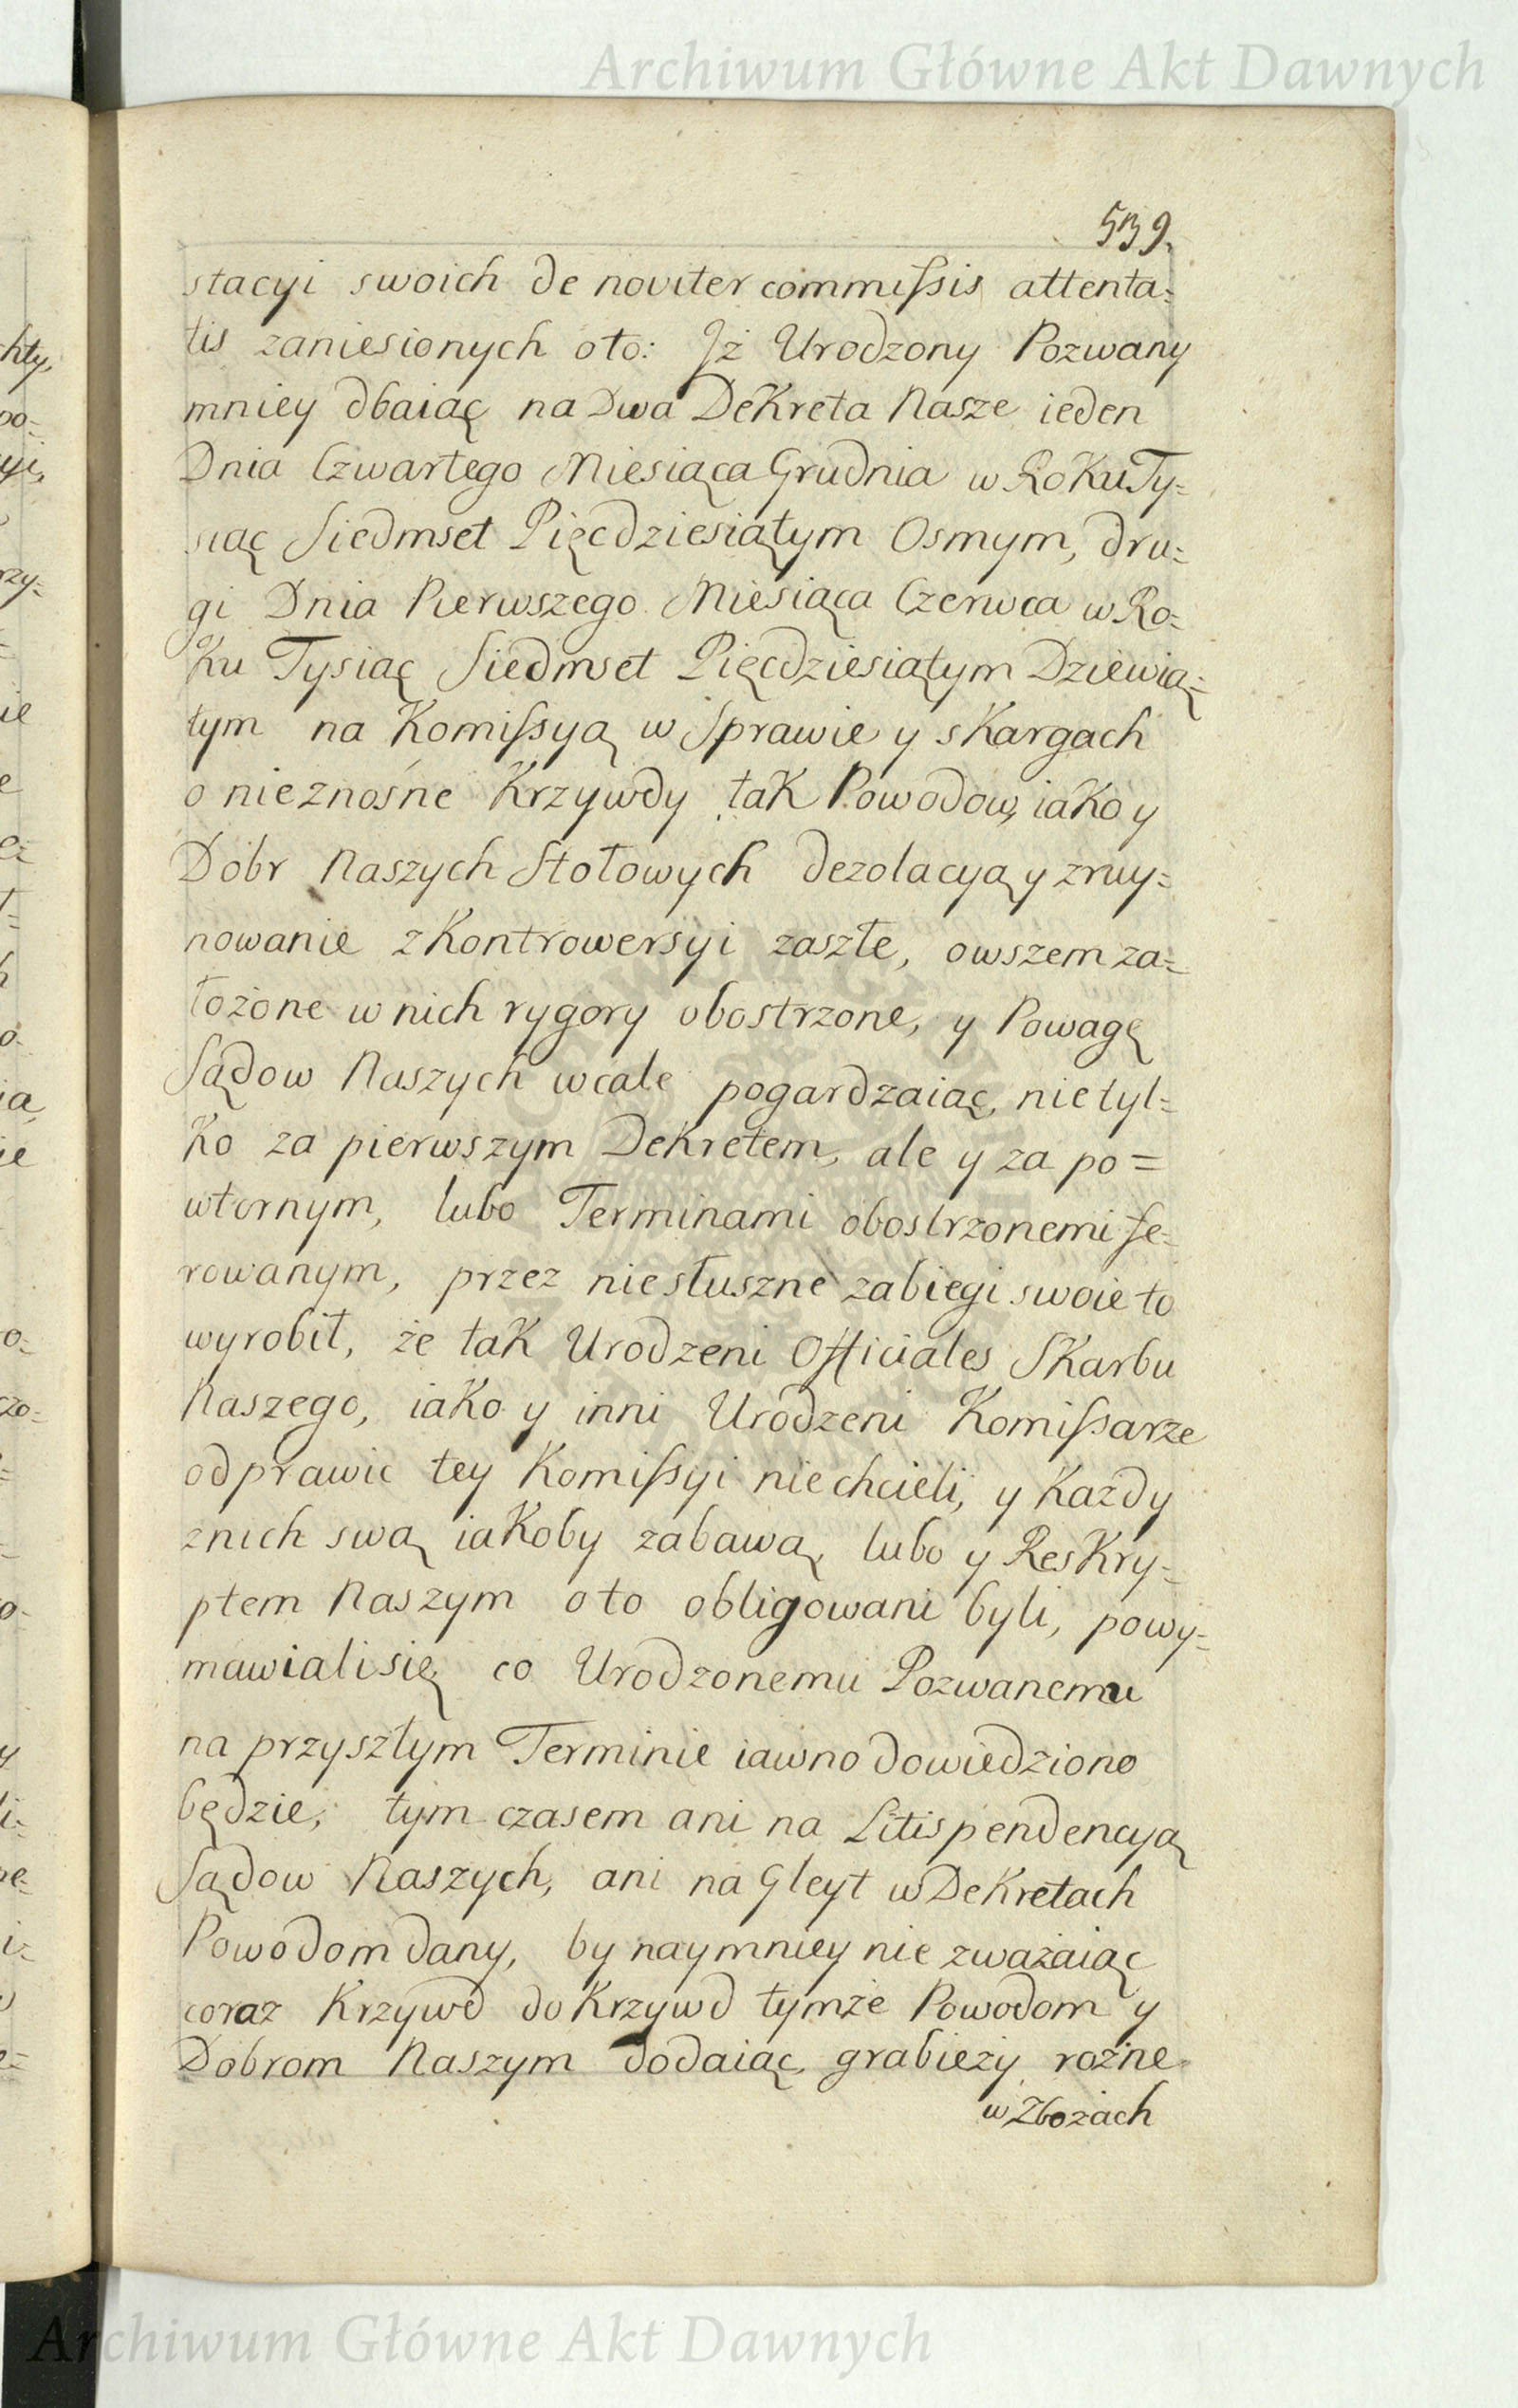 Archiwum Główne Akt Dawnych
539.
stacyi swoich de noviter commissis attenta=
tis zaniesionych oto: Jż Urodzony Pozwany
mniey dbaiąc na Dwa Dekreta Nasze ieden
Dnia Czwartego Miesiąca Grudnia w Roku Ty=
siąc Siedmset Pięcdziesiątym Osmym, dru=
gi Dnia Pierwszego Miesiąca Czerwca w Ro=
ku Tysiąc Siedmset Pięcdziesiątym Dziewią=
tym na Komissyą w Sprawie y skargach
o nieznośne Krzywdy tak Powodow, iako y
Dobr Naszych Stołowych dezolacyą y zruy=
nowanie z Kontrowersyi zaszłe, owszem za=
łożone w nich rygory obostrzone, y Powagę
Sądow Naszych wcale pogardzaiąc, nietyl=
ko za pierwszym Dekretem, ale y za po=
wtornym, lubo Terminami obostrzonemi fe=
rowanym, przez niesłuszne zabiegi swoie to
wyrobił, że tak Urodzeni Officiales Skarbu
Naszego, iako y inni Urodzeni Komissarze
odprawic tey Komissyi niechcieli, y każdy
znich swą iakoby zabawą, lubo y Reskry=
ptem Naszym oto obligowani byli, powy=
mawiali się, co Urodzonemu Pozwanemu
na przyszłym Terminie iawno dowiedziono
będzie, tym czasem ani na Litispendencyą
Sądow Naszych, ani na Gleyt w Dekretach
Powodom dany, by naymniey nie zważaiąc
coraz Krzywd do Krzywd tymże Powodom y
Dobrom Naszym dodaiąc, grabieży rożne
w Zbożach
Archiwum Główne Akt Dawnych